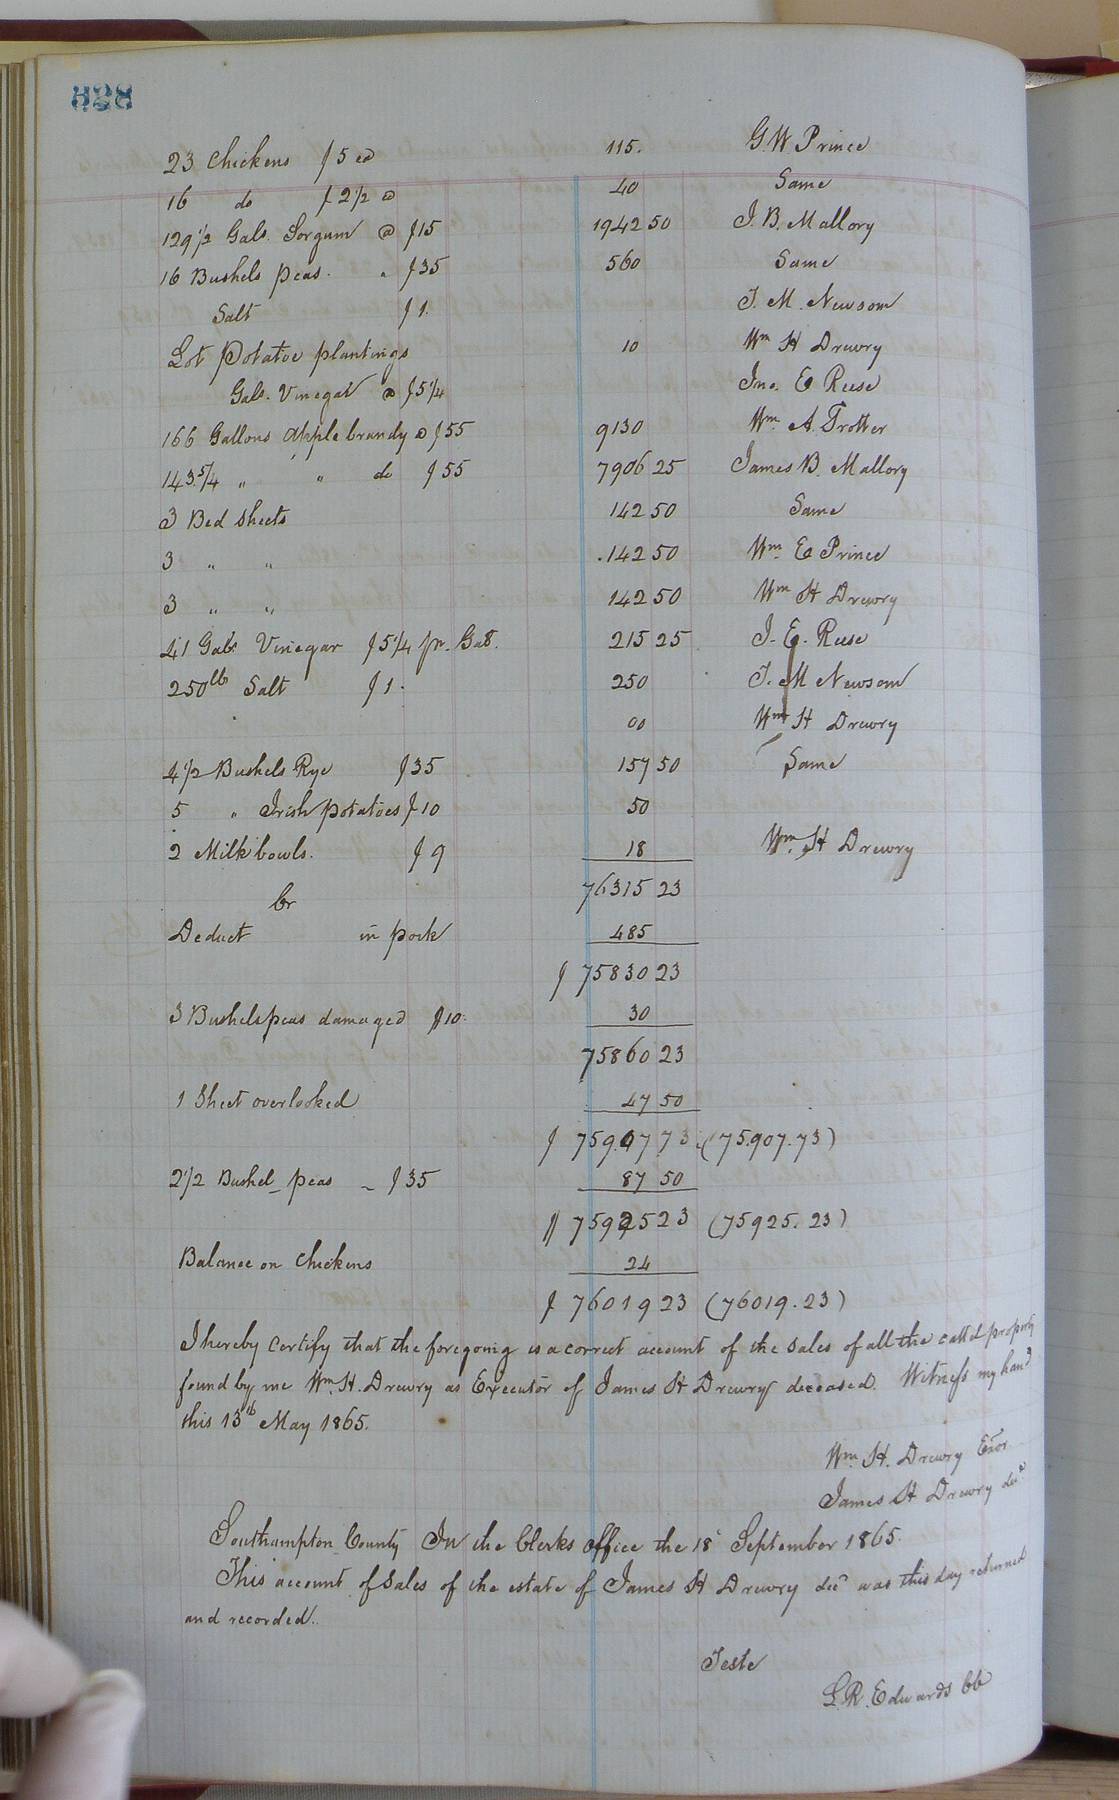 828
23 Chickens $5 ea 115. G. W Prince
16 do $2 1/2 @ 40 Same
129 1/2 Gals. Sorgum @ $15 1942 50 J. B. Mallory
16 Bushels peas. " $35 560 Same
Salt $1. J. M. Newsom
Lot Potatoe plantings 10 Wm H Drewry
Gals. Vinegar @ $5 1/4 Jno. E Reese
166 Gallons Apple brandy @ $55 9130 Wm. A. Trotter
143 5/4 " " do $55 7906 25 James B. Mallory
3 Bed Sheets 142 50 Same
3 " " 142 50 Wm. E Prince
3 " " 142 50 Wm H Drewry
41 Gals Vinegar $5 1/4 pr. Gal. 215 25 J. E. Reese
250 lb Salt $1. 250 J. M Newsom
00 Wm H Drewry
4 1/2 Bushels Rye $35 157 50 Same
5 " Irish potatoes $10 50
2 Milk bowls. $9 18 Wm. H Drewry
76315 23
Cr
Deduct in pork 485
$ 75830 23
3 Bushels peas damaged $10. 30
75860 23
1 Sheet overlooked 47 50
$ 75907 73 (75.907.73)
2 1/2 Bushel peas - $35 87 50
$ 75925 23 (75925.23)
Balance on Chickens 24
$ 76019 23 (76019.23)
I hereby certify that the foregoing is a correct account of the sales of all the property
found by me Wm. H. Drewry as Executor of James H Drewry deceased. Witness my hand
this 13th May 1865.
Wm. H. Drewry Exor
James H Drewry decd
Southampton County In the Clerks office the 18 September 1865.
This account of Sales of the estate of James H Drewry decd was this day returned
and recorded.
Teste
L. R. Edwards CC